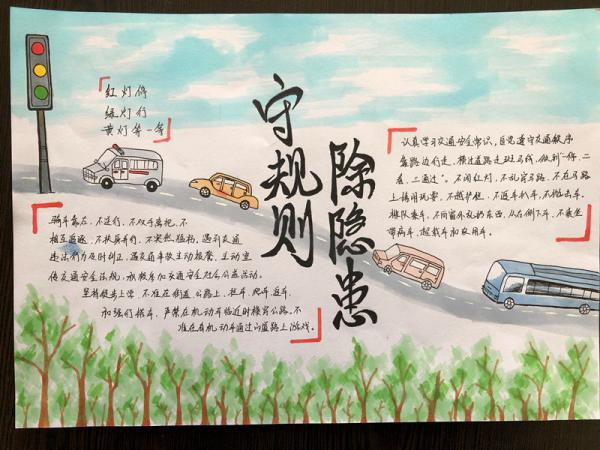 红灯停
绿灯行
黄灯等一等
守规则
除隐患
认真学习交通安全常识，自觉遵守交通秩序
靠路边行走，横过道路走斑马线，做到一停、二
看、三通过。不闯红灯，不乱穿马路，不在马路
上嬉闹玩耍，不越护栏，不追车扒车，不抛击车。
排队乘车，不向窗外乱扔东西，从右侧下车，不乘坐
带病车、超载车和农用车。
骑车靠右，不逆行，不双手离把，不
相互追逐，不扶肩并行，不突然猛拐，遇到交通
违法行为及时纠正，遇交通事故主动报警，主动宣
传交通安全法规，积极参加交通安全社会公益活动。
坚持徒步上学，不准在街道、公路上，拦车、爬车、追车、
严禁在机动车临近时横穿公路。不
准在有机动车通过的道路上游戏。